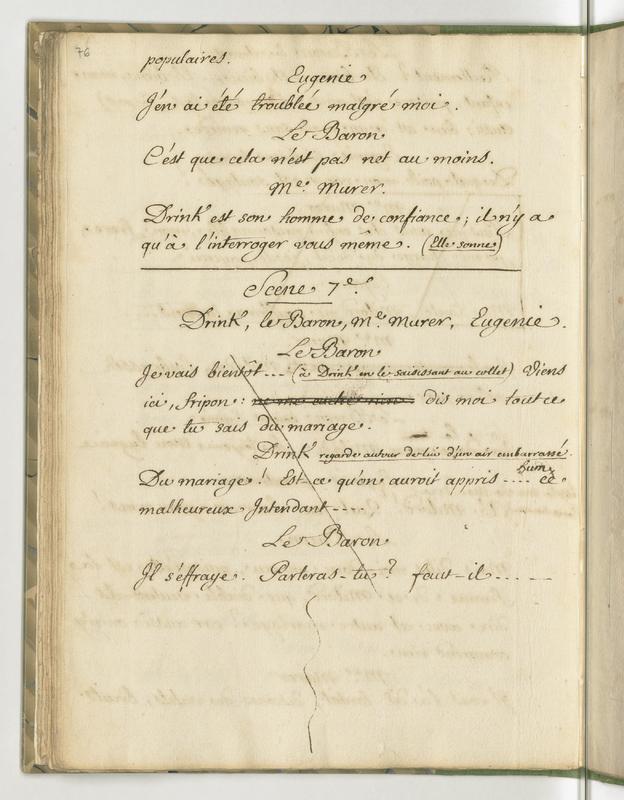 76
populaires.
Eugenie
J'en ai été troublée malgré moi.
Le Baron
C'est que cela n'est pas net au moins.
Me. Murer.
Drink est son homme de confiance; il n'y a
qu'à l'interroger vous même. (Elle sonne)
Scene 7e.
Drink, le Baron, Me. Murer, Eugenie.
Le Baron
Je vais bientôt... (à Drink en le saisissant au collet) Viens
ici, fripon: ne me cache rien dis moi tout ce
que tu sais du mariage.
Drink regarde autour de lui d'un air embarrassé.
Du mariage! Est-ce qu'on auroit appris .... hum ce
malheureux Intendant ....
Le Baron
Il s'effraye. Parleras-tu? faut-il .....